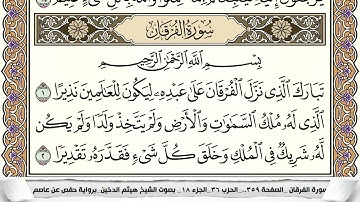 سُورَةُ الْفُرْقَانِ
بِسْمِ اللَّهِ الرَّحْمَٰنِ الرَّحِيمِ
تَبَارَكَ الَّذِي نَزَّلَ الْفُرْقَانَ عَلَىٰ عَبْدِهِ لِيَكُونَ لِلْعَالَمِينَ نَذِيرًا ١
الَّذِي لَهُ مُلْكُ السَّمَٰوَٰتِ وَالْأَرْضِ وَلَمْ يَتَّخِذْ وَلَدًا وَلَمْ يَكُن
لَّهُ شَرِيكٌ فِي الْمُلْكِ وَخَلَقَ كُلَّ شَيْءٍ فَقَدَّرَهُ تَقْدِيرًا ٢
سورة الفرقان _الصفحة ٣٥٩_ _الحزب ٣٦_ الجزء ١٨_ بصوت الشيخ هيثم الدخين_برواية حفص عن عاصم